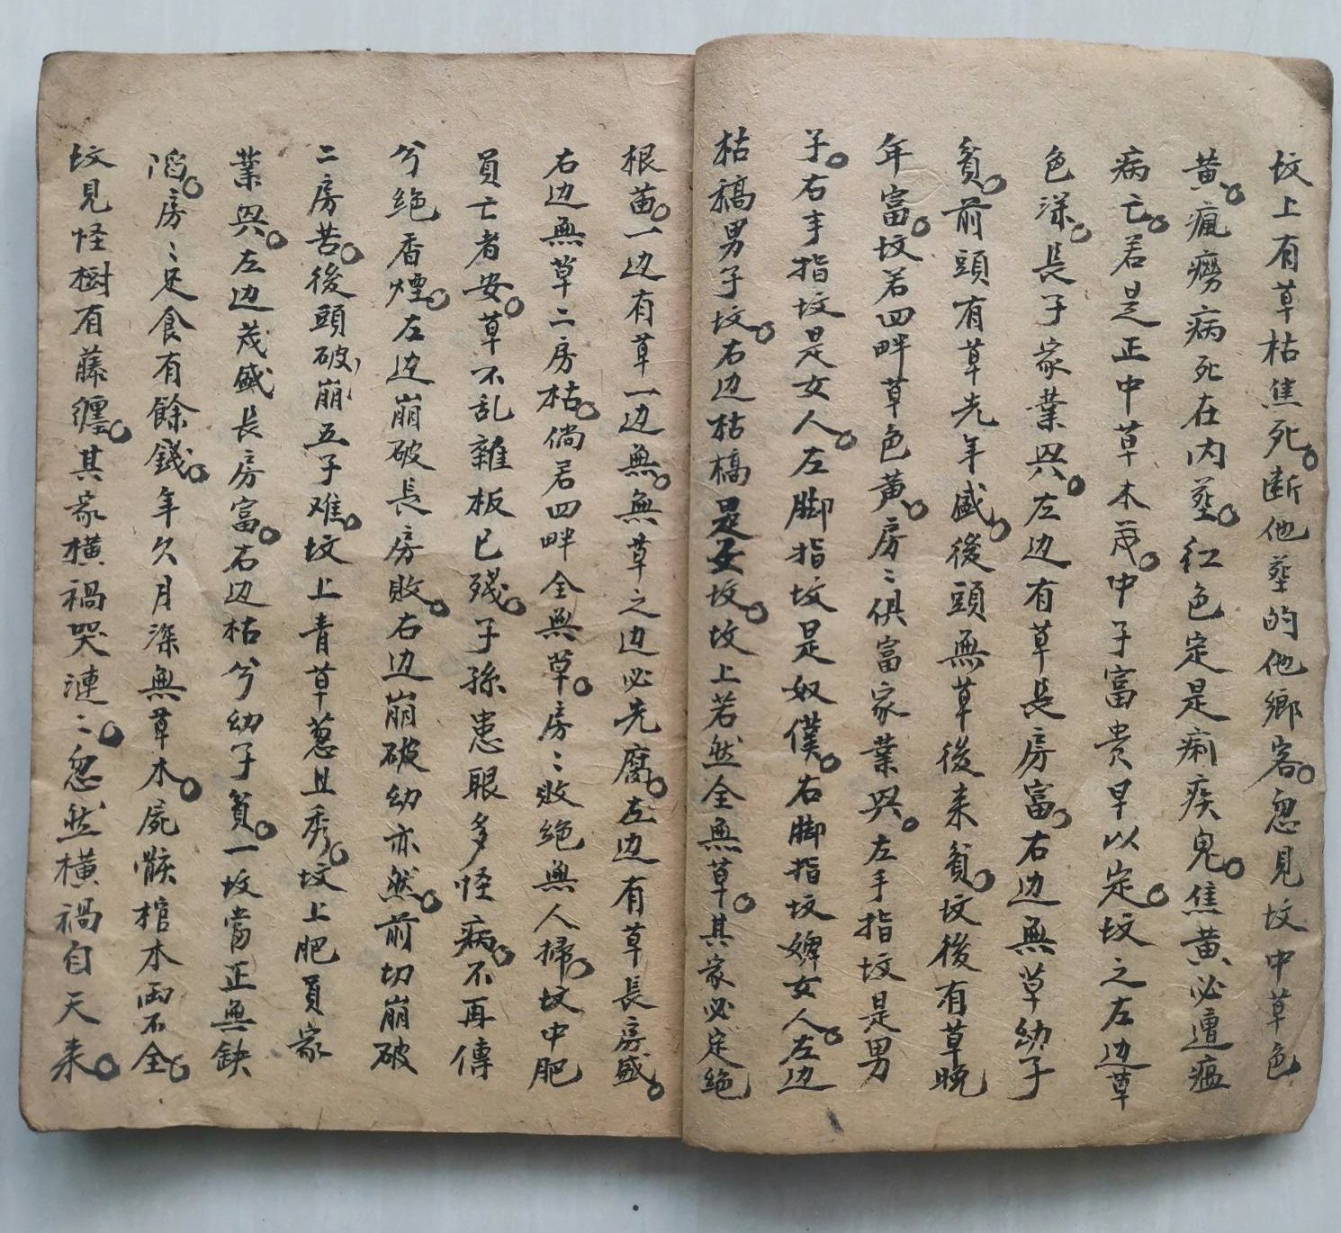 坟上有草枯焦死。断他塟的他鄉客。忽見坟中草色
黄。瘋癆病死在内塟。红色定是痢疾鬼。焦黄必遭瘟
病亡。若是正中草木茂。中子富貴早以定。坟之左边草
色深。長子家業興。左边有草長房富。右边無草幼子
貧。前頭有草先年盛。後頭無草後来貧。坟後有草晚
年富。坟若四畔草色黄。房〻俱富家業興。左手指坟是男
子。右手指坟是女人。左脚指坟是奴僕。右脚指坟婢女人。左边
枯稿男子坟。右边枯槁是女坟。坟上若然全無草。其家必定絶
根苗。一边有草一边無。無草之边必先腐。左边有草長房盛。
右边無草二房枯。倘若四畔全無草。房〻敗絶無人掃。坟中肥
員亡者安。草不乱雜板已殘。子孫患眼多怪病。不再傳
兮绝香煙。左边崩破長房敗。右边崩破幼亦然。前切崩破
二房苦。後頭破崩五子难。坟上青草葱且秀。坟上肥員家
業興。左边茂盛長房富。右边枯兮幼子貧。一坟當正無缺
陷。房〻足食有餘錢。年久月深無草木。屍骸棺木両不全。
坟見怪樹有藤纏。其家横禍哭漣〻。忽然横禍自天来。